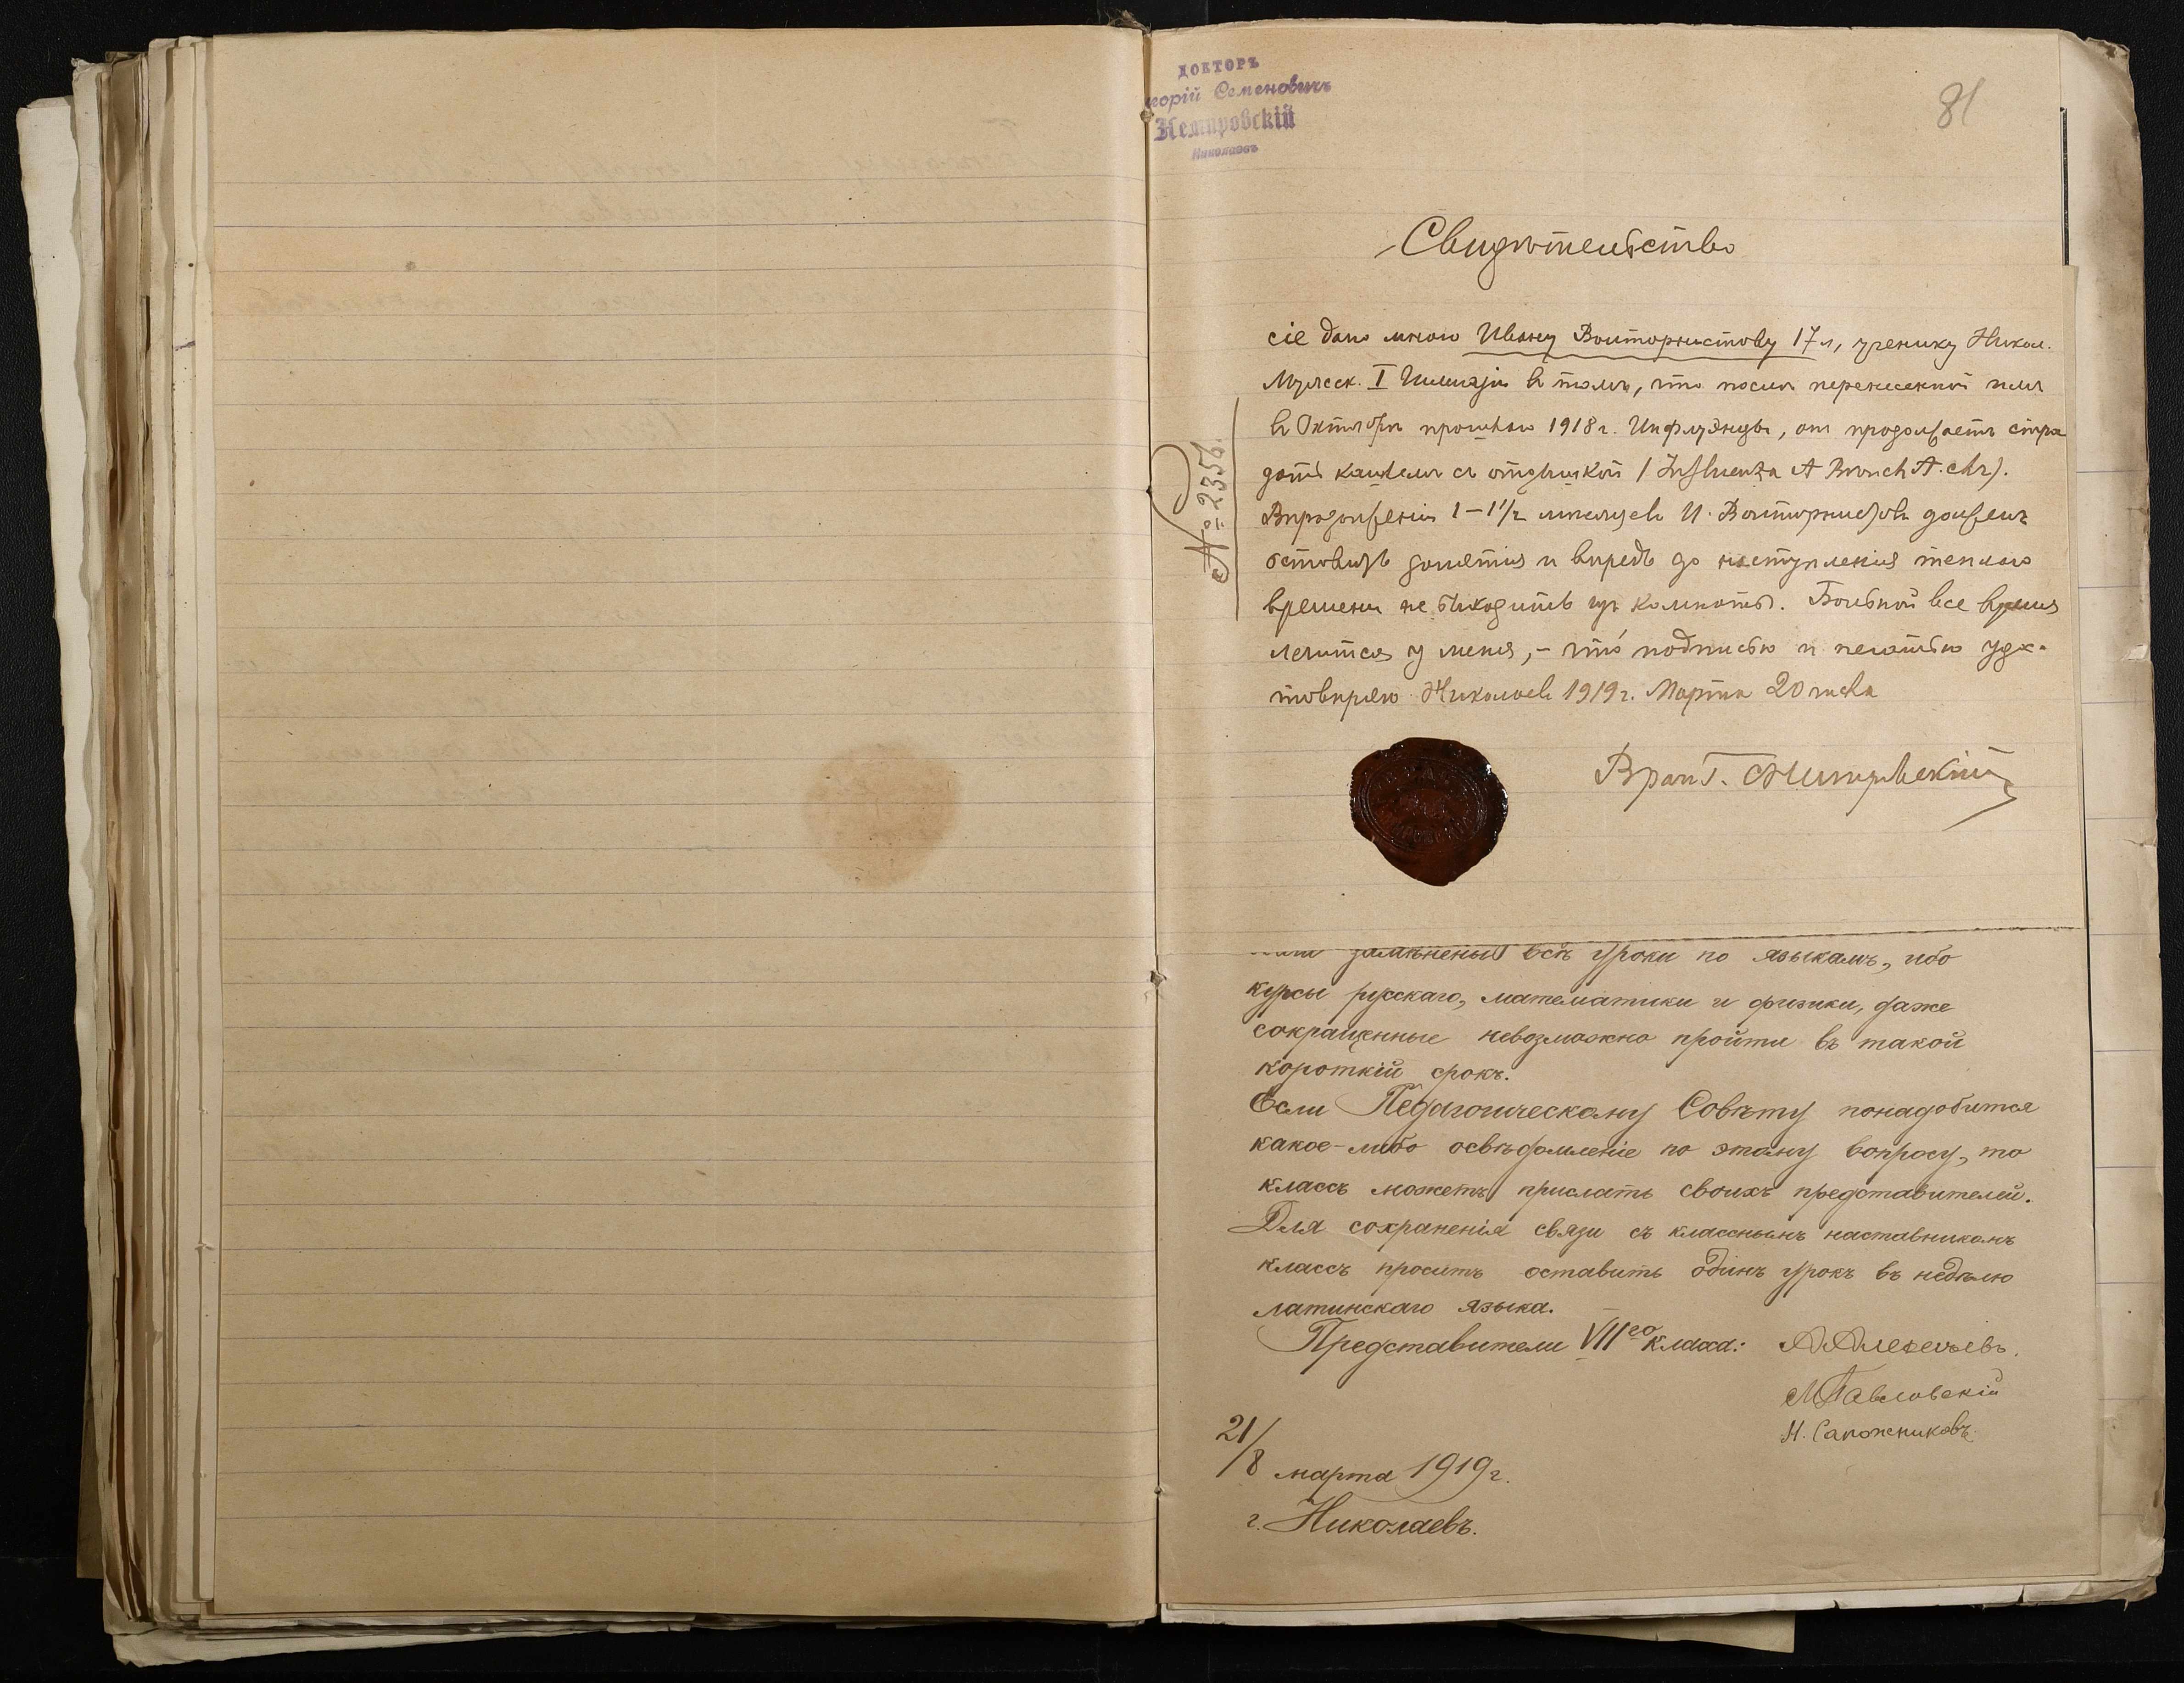 81
ДОКТОРЪ
горій Семеновичъ
Немировскій
Николаевъ
Свидѣтельство
сіе дано мною Ивану 17 л, ученику Никол.
Мужеск. I Гимназіи въ томъ, что послѣ перенесенной имъ
въ Октябрѣ прошлаго 1918 г. Инфлуэнцы, онъ продолжаетъ стра
дать кашлемъ съ отдышкой (Influenza
Впродолженіи 1–1½ мѣсяцевъ И. долженъ
оставить занятія и впредь до наступленія теплаго
времени не выходить изъ комнаты. Больной все время
лечится у меня, – что подписью и печатью удо-
товѣряю Николаевъ 1919 г. Марта 20 числа
Врачъ Г. Немировскій
№ 2356.
замѣнены всѣ уроки по языкамъ, ибо
курсы русскаго, математики и физики, даже
сокращенные невозможно пройти въ такой
короткій срокъ.
Если Педагогическому Совѣту понадобится
какое-либо освѣдомленіе по этому вопросу, то
классъ можетъ прислать своихъ представителей.
Для сохраненія связи съ класснымъ наставникомъ
классъ проситъ оставить одинъ урокъ въ недѣлю
латинскаго языка.
Представители VIIго класса: А Алексѣевъ.
М Павловскій
Н. Сапожниковъ.
21/8 марта 1919 г.
г. Николаевъ.